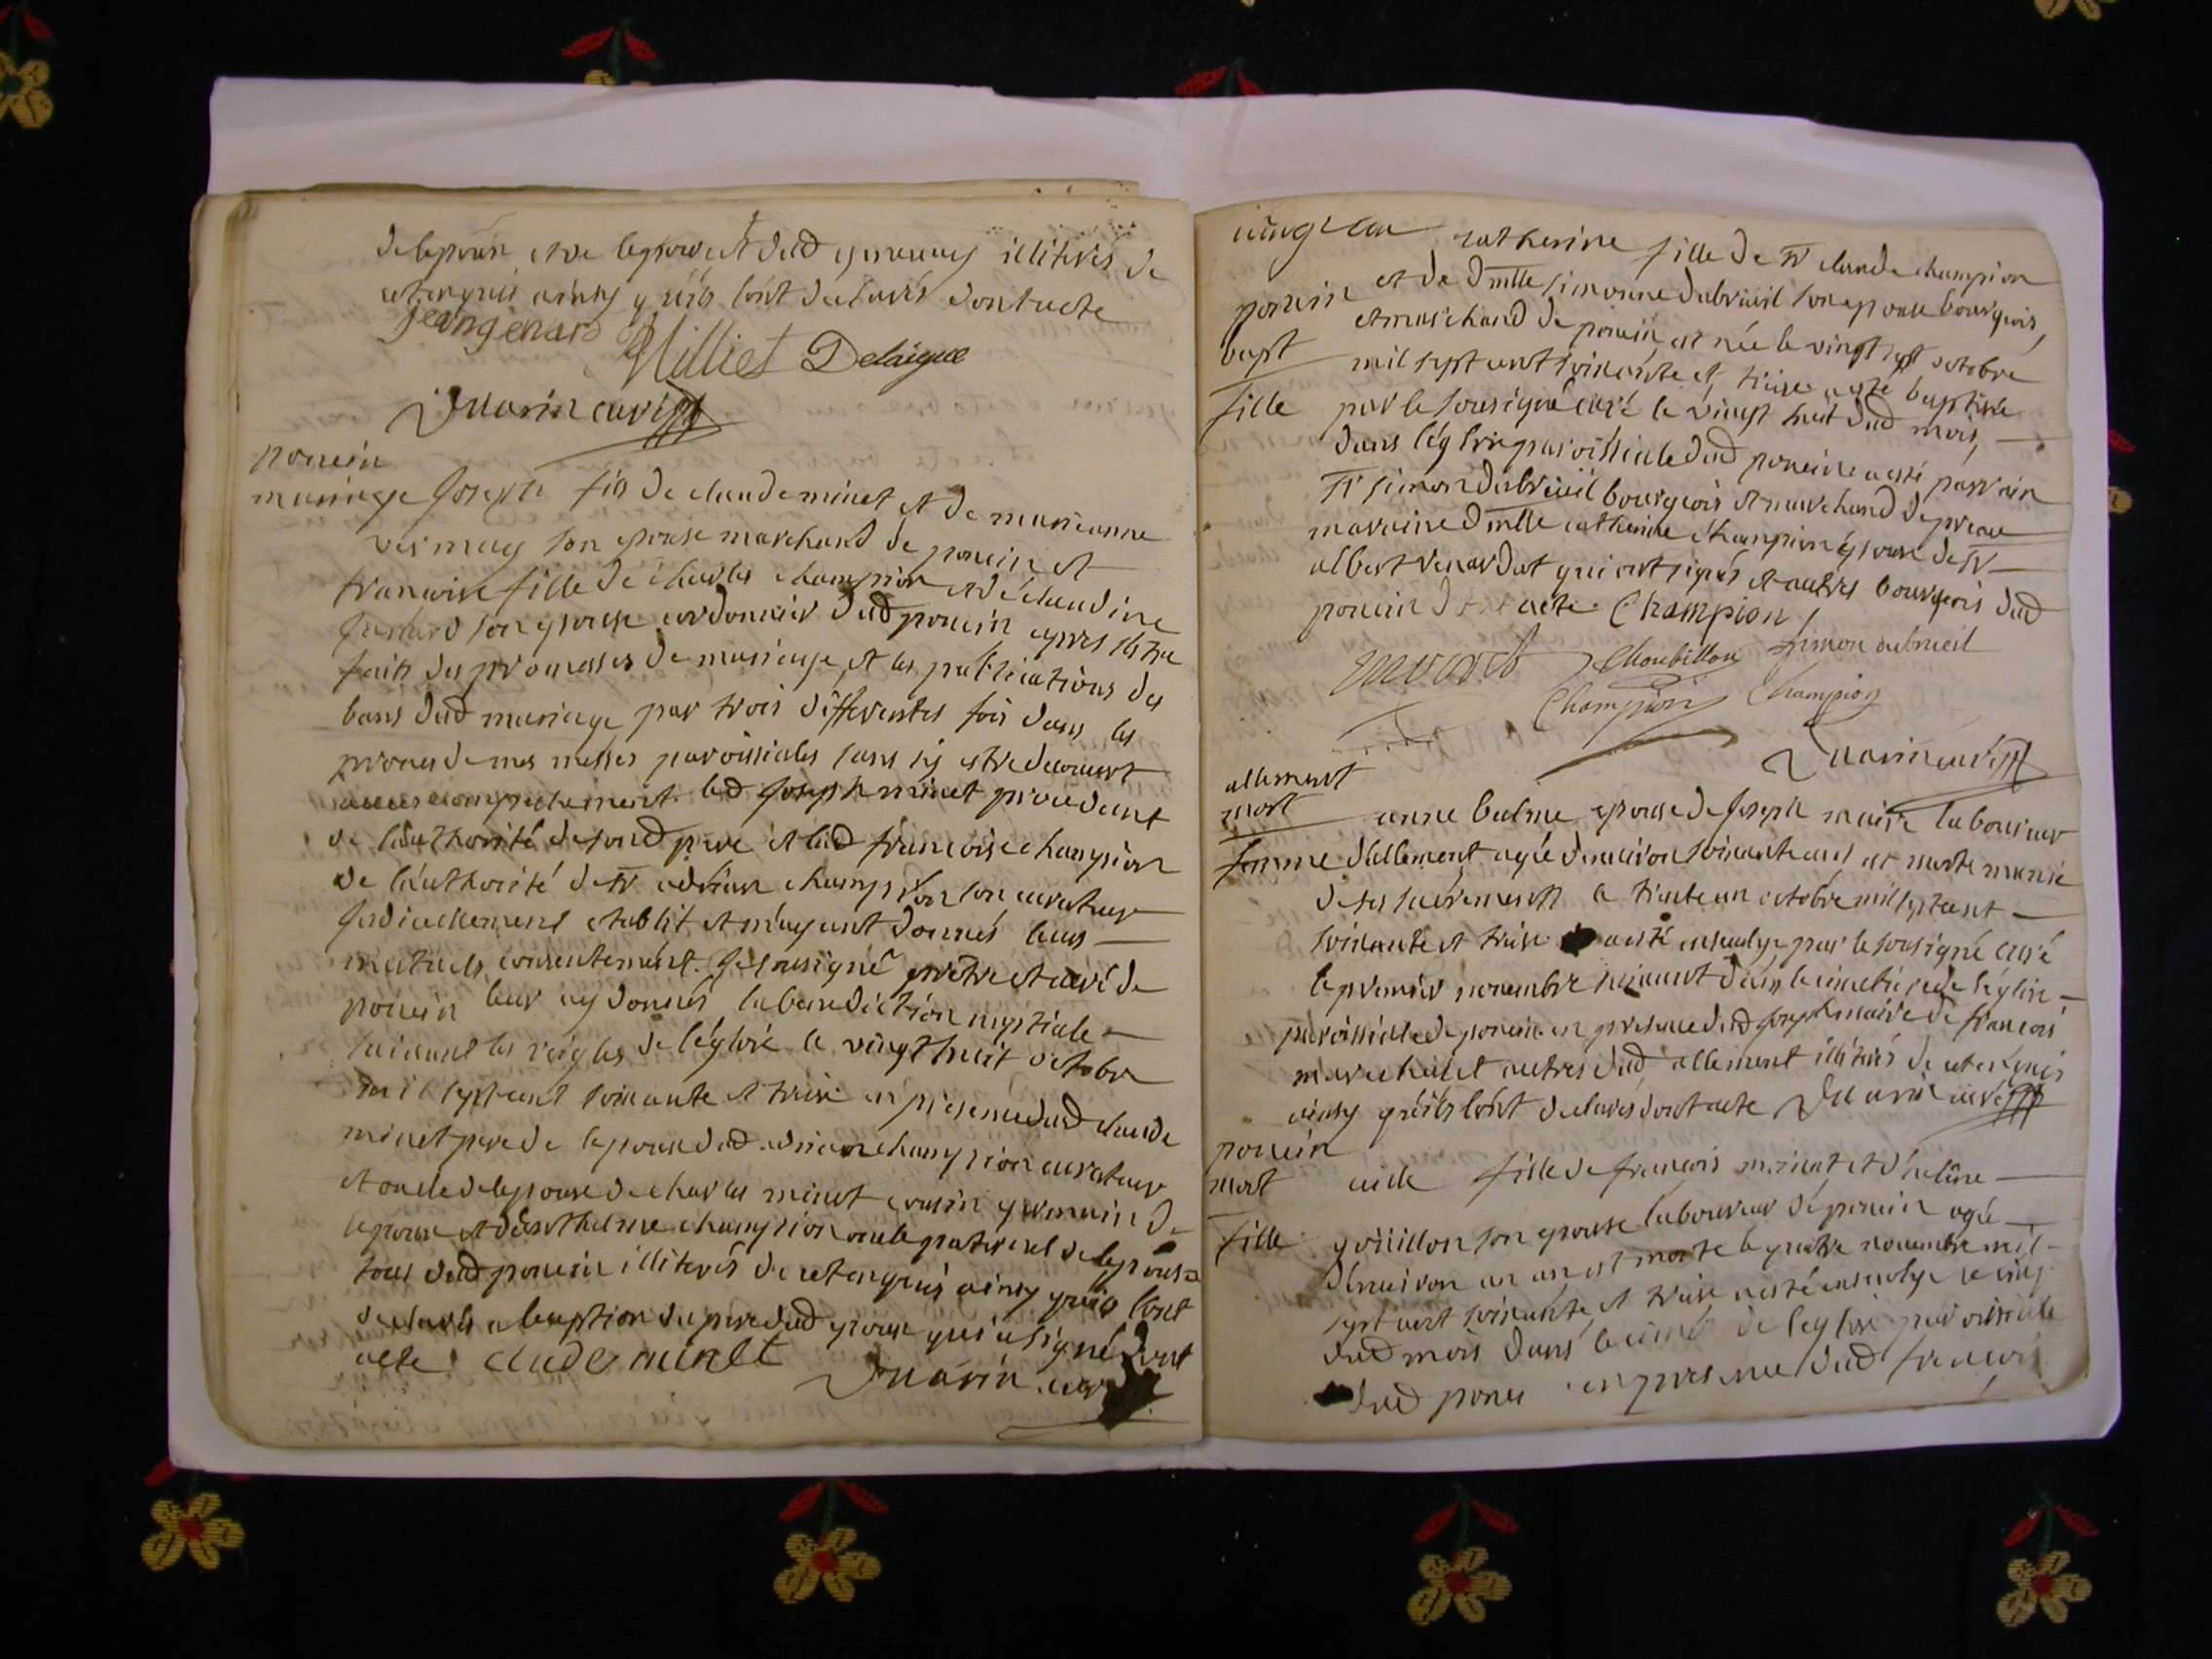 de lepoux et de lepouse dud illiterés de
ce enquis ainsy quils lont declarés dont acte
jean genard Milliet Delaigue
Marin curé
poncin
mariage Joseph fils de claude minet et de marianne
son epouse marchand de poncin et
francoise fille de charles champion et de claudine
son epouse cordonnier dud poncin apres s'etre
faits des promesses de mariage, et les publications des
bans dud mariage par trois differentes fois dans les
prones de mes messes paroissiales sans s'y estre decouvert
aucun empechement. led joseph minet procedant
de l'authorité de sond pere et lad francoise champion
de l'authorité de Sr adrian champion son curateur
judiciellement etablit et m'ayant donnés leurs
mutuels consentement. Je sousigné pretre et curé de
poncin leur ay donnés la benediction nuptiale
suivant les reigles de l'église le vingt huit octobre
mil sept cent soixante et treize en presence dud claude
minet pere de lepoux dud adrian champion curateur
et oncle de lepouse de charles minet cousin germain de
lepoux et d'anthelme champion oncle paternel de lepouse
tous dud poncin illiterés de ce enquis ainsy quils lont
declarés a leuption du pere dud epoux qui a signé dont
acte claude minet Marin curé
catherine fille de Sr claude champion
poncin et de dmlle simonne dubrieuil son epouse bourgeois
et marchand de poncin est née le vingt sept octobre
bapt mil sept cent soixante et treize a esté baptisée
fille par le sousigné curé le vingt huit dud mois
dans léglise paroissiale dud poncin a esté parrain
Sr simon dubrieuil bourgeois et marchand de
marraine dmlle catherine champion epouse de Sr
albert renardat qui ont signés et autres bourgeois dud
poncin dont acte Champion
renardat Choubillon Simon dubrieil
Champion Champion
Marin curé
allement
mort anne balme epouse de Joseph maire laboureur
femme d'allement agée denviron soixante ans est morte munie
de ses sacrements le trente un octobre mil sept cent
soixante et treize a esté ensevelye par le sousigné curé
le premier novembre suivant dans le cimetiere de l'église
paroissiale de poncin en presence dud joseph maire de francois
marechal et autres dud allement illiterés de ce enquis
ainsy quils lont declarés dont acte Marin curé
poncin
mort fille de francois et d'
fille goüillon son epouse laboureur de poncin agée
denviron un an est morte le quatre novembre mil
sept cent soixante et treize a esté ensevelye le cinq
dud mois dans le de leglise paroissiale
dud en presence dud francois